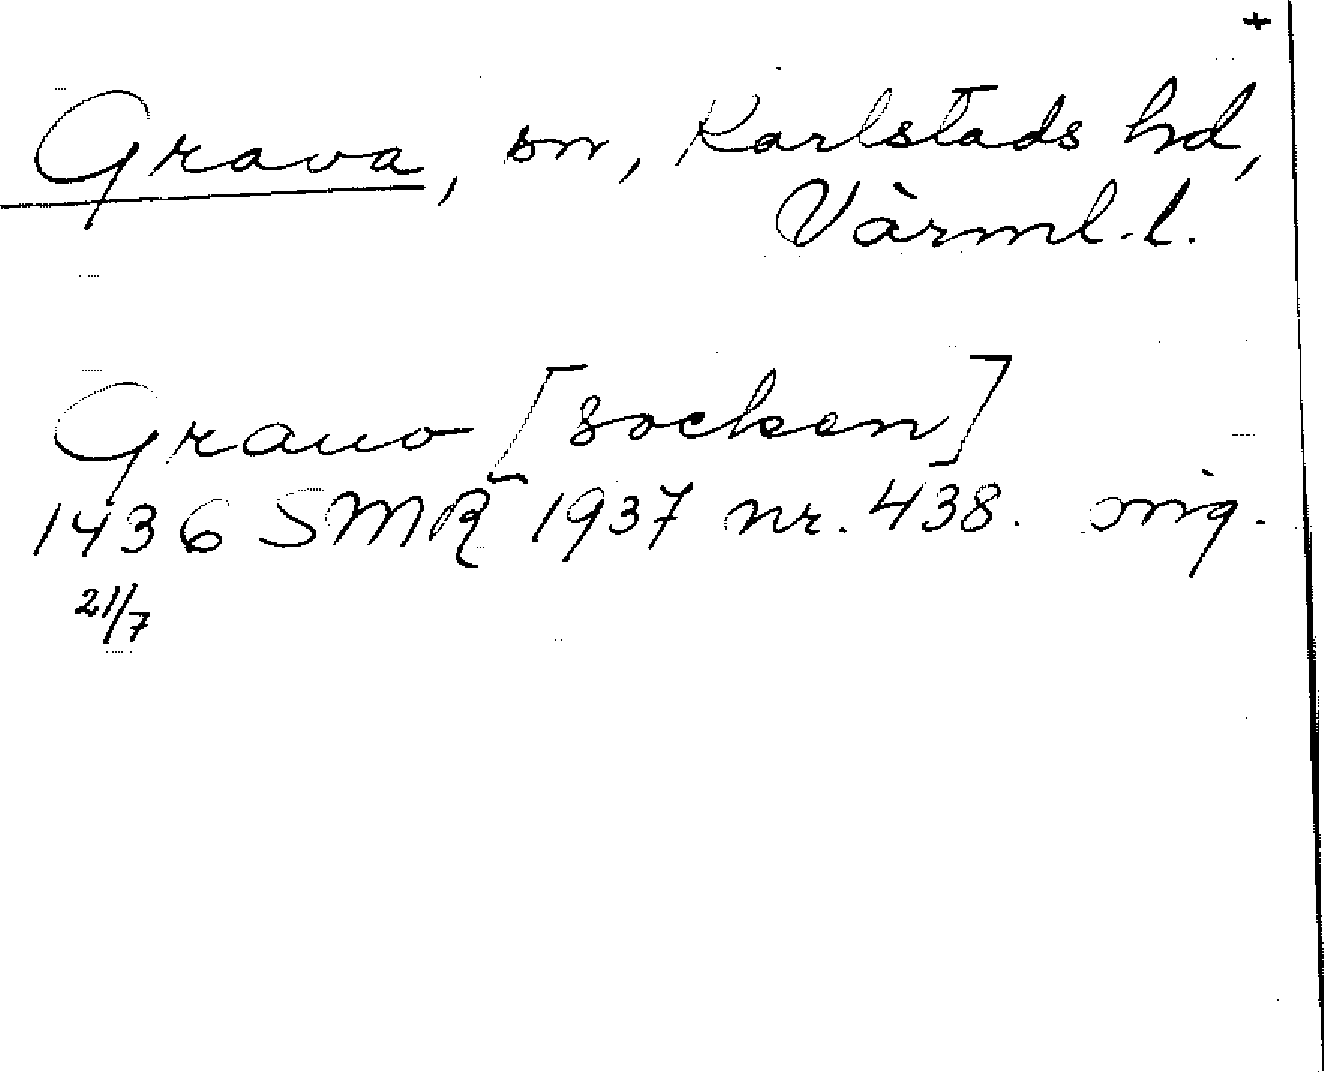 +
Grava, sn, Karlstads hd,
Värml. l.
Grauo [socken]
1436 SMR 1937 nr. 438. orig.
21/7